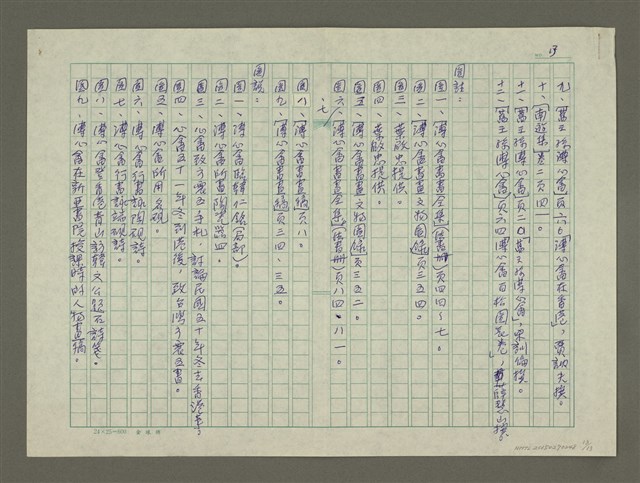 13
九、《舊王孫溥心畬》頁六六《溥心畬在香港》,賈訥夫撰。
十、《南遊集》卷二頁四一。
十一、《舊王孫溥心畬》頁二〇《舊王孫溥心畬》,撰。
十二、《舊王孫溥心畬》頁六四《溥心畬百松圖長卷》,撰。
圖註:
圖一、《溥心畬書畫全集》(書冊)頁四四~七。
圖二、《溥心畬書畫文物圖錄》頁三五四。
圖三、葉啟忠提供。
圖四、葉啟忠提供。
圖五、《溥心畬書畫文物圖錄》頁三五二。
圖六、七、《溥心畬書畫全集》(書冊)頁八四、八一。
圖八、《溥心畬書畫稿》頁六八。
圖九、《溥心畬書畫稿》頁三四、三五。
圖說:
圖一、溥心畬臨韓仁銘(局部)。
圖二、溥心畬所畫陶瓷器四。
圖三、心畬致子震五手札,討論民國五十年冬去香港事。
圖四、心畬五十一年冬到港後,致台灣子震五書。
圖五、溥心畬所用名硯。
圖六、溥心畬行書詠陶硯詩。
圖七、溥心畬行書詠端硯詩。
圖八、溥心畬登香港青山訪韓文公題石詩箋。
圖九、溥心畬在新亞書院授課時的人物畫稿。
24×25=600